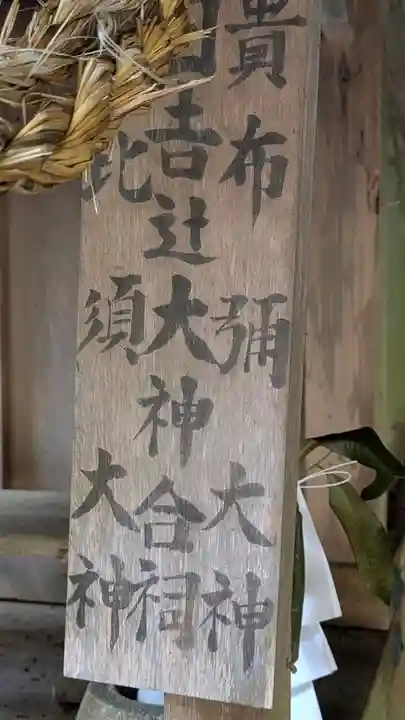 貴布彌大神
吉辻大神合祠
比須大神